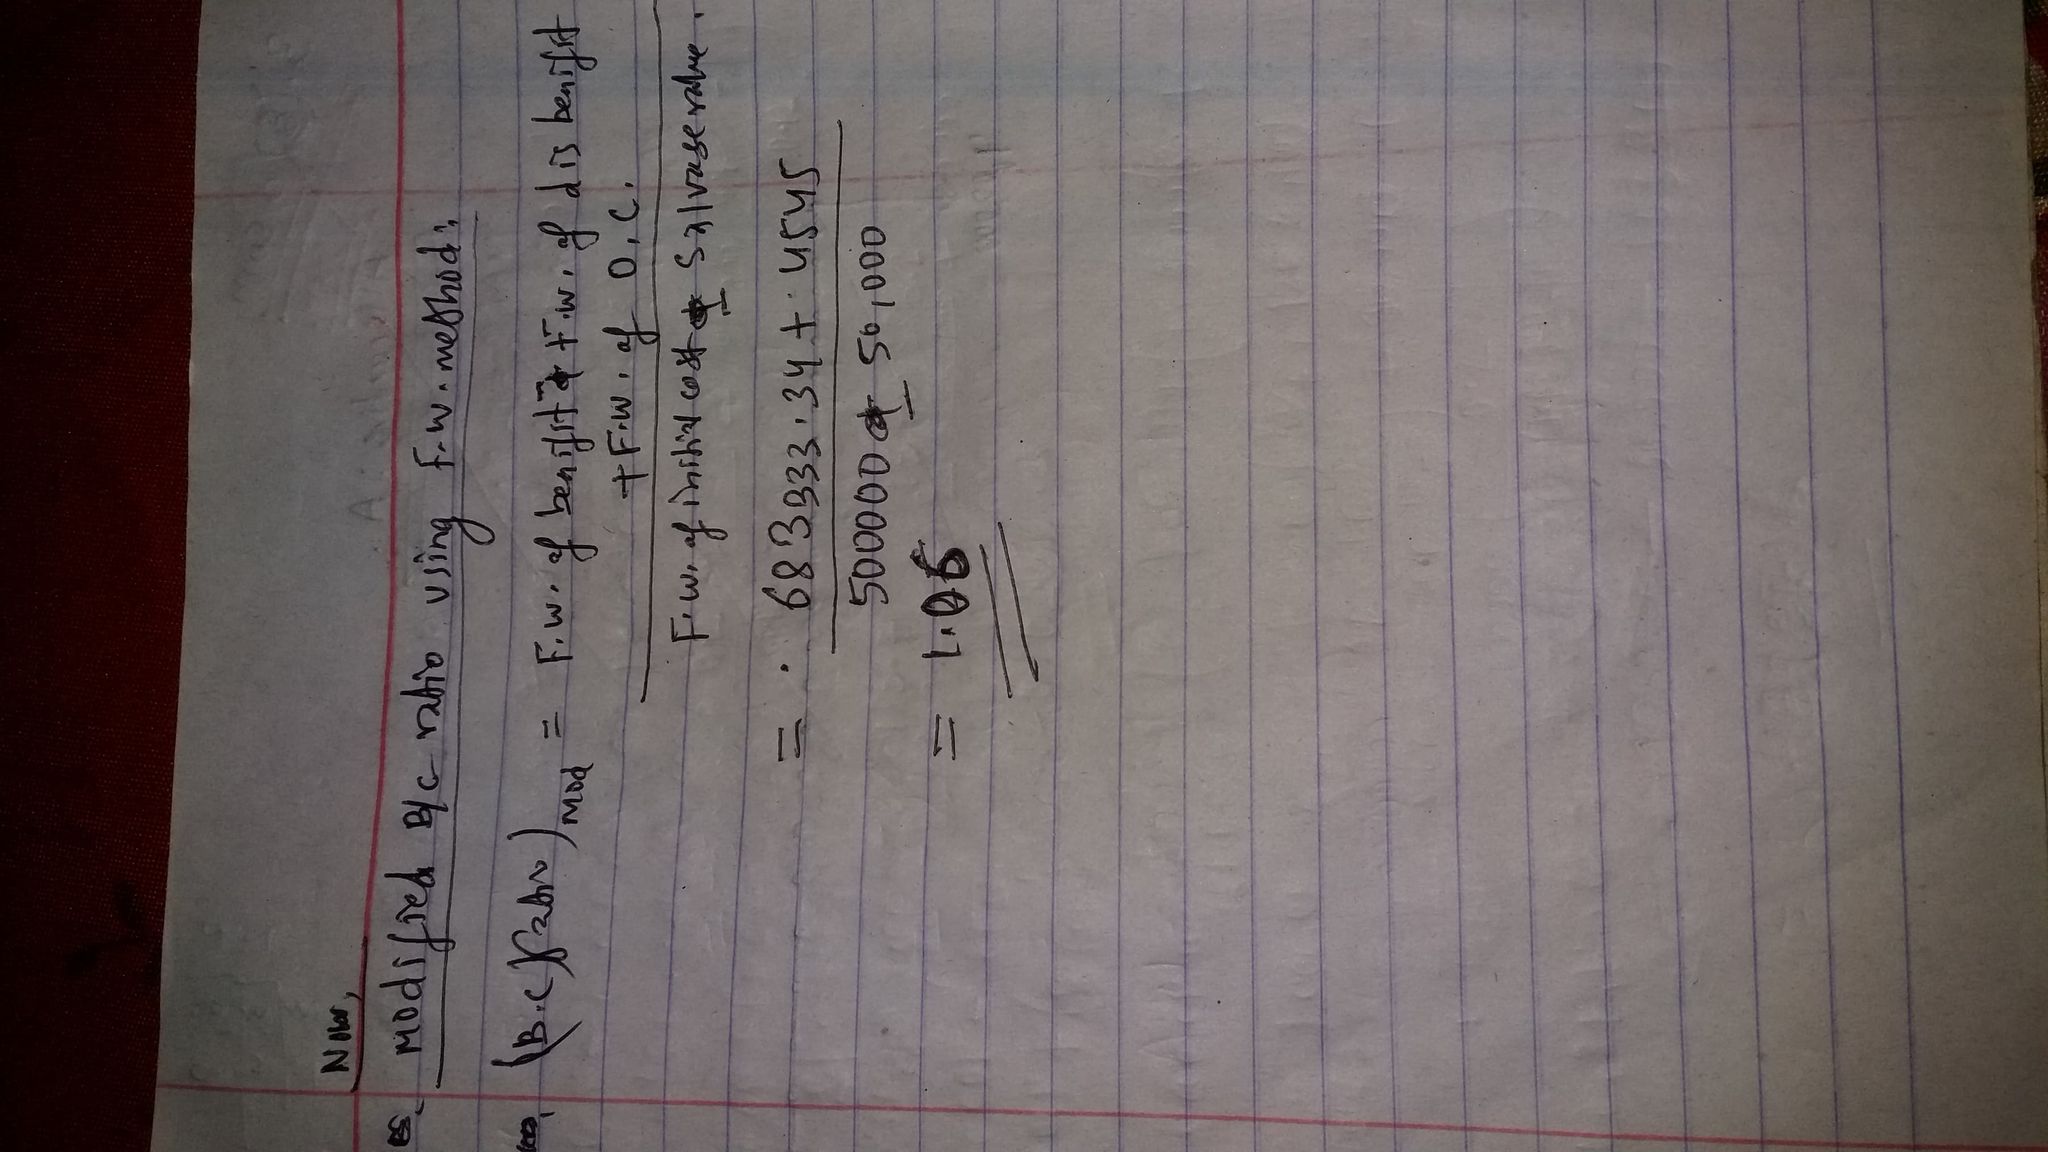 Now,
modified B/C ratio using F.W. method:
(B.C ratio)mod = F.W. of benifit + F.W. of dis benifit
+ F.W. of O.C.
F.W. of initial cost - Salvage value.
= 683333.34 + 4545
500000 - 50,000
= 1.06